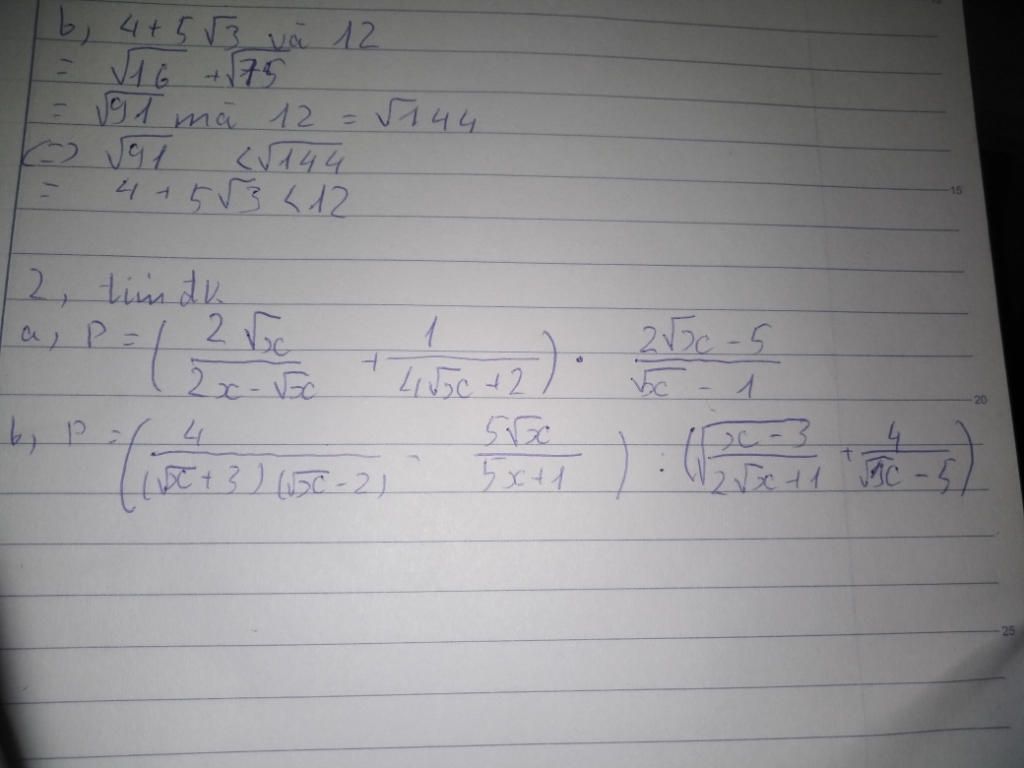 b, 4 + 5√3 và 12
= √16 + √75
= √91 mà 12 = √144
(=) √91 < √144
= 4 + 5√3 < 12
15
2, tìm đk
a, P = ( 2√x / (2x - √x) + 1 / (4√x + 2) ) . (2√x - 5) / (√x - 1)
20
b, P = ( 4 / ((√x + 3)(√x - 2)) - 5√x / (5x + 1) ) : ( √(x - 3) / (2√x + 1) + 4 / (√x - 5) )
25